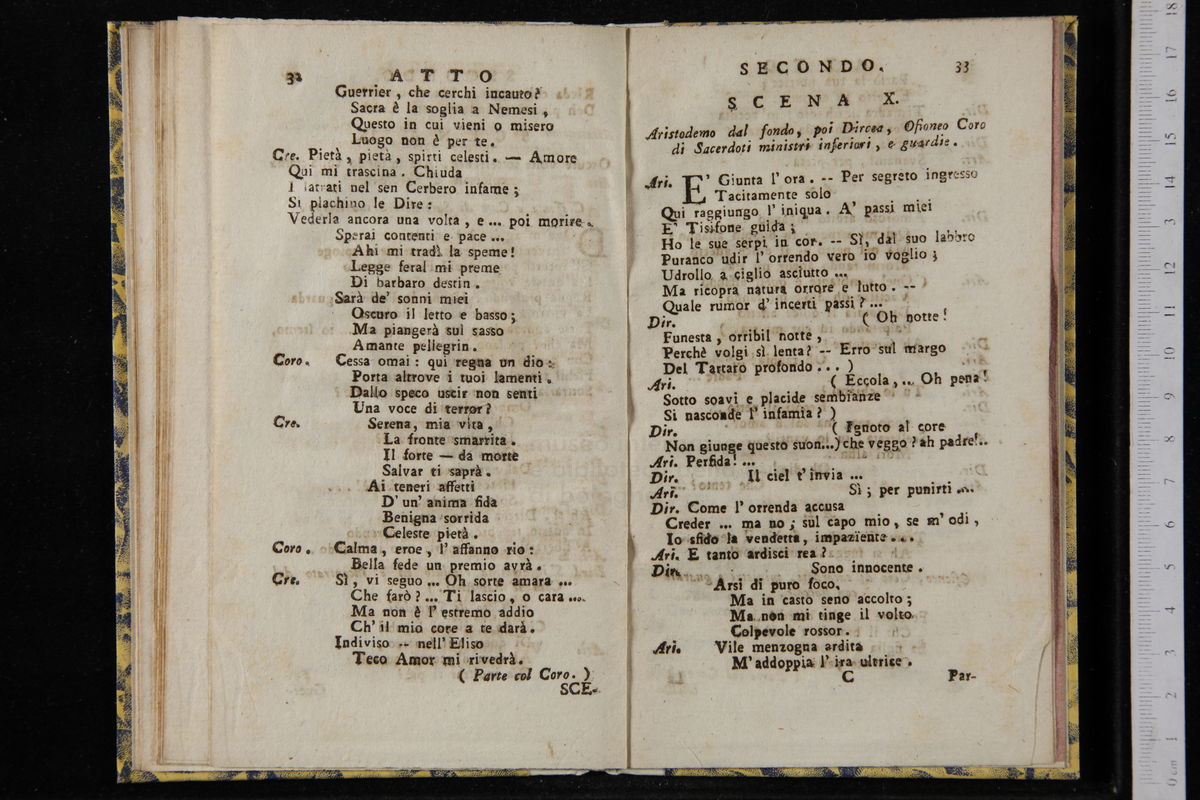 32 ATTO
Guerrier, che cerchi incauto?
Sacra è la soglia a Nemesi,
Questo in cui vieni o misero
Luogo non è per te.
Cre. Pietà, pietà, spirti celesti. — Amore
Qui mi trascina. Chiuda
I latrati nel sen Cerbero infame;
Si plachino le Dire:
Vederla ancora una volta, e... poi morire.
Sperai contenti e pace...
Ahi mi tradì la speme!
Legge feral mi preme
Di barbaro destin.
Sarà de' sonni miei
Oscuro il letto e basso;
Ma piangerà sul sasso
Amante pellegrin.
Coro. Cessa omai: qui regna un dio:
Porta altrove i tuoi lamenti.
Dallo speco uscir non senti
Una voce di terror?
Cre. Serena, mia vita,
La fronte smarrita.
Il forte — da morte
Salvar ti saprà.
Ai teneri affetti
D'un' anima fida
Benigna sorrida
Celeste pietà.
Coro. Calma, eroe, l'affanno rio:
Bella fede un premio avrà.
Cre. Sì, vi seguo... Oh sorte amara...
Che farò?... Ti lascio, o cara...
Ma non è l'estremo addio
Ch'il mio core a te darà.
Indiviso -- nell'Eliso
Teco Amor mi rivedrà.
( Parte col Coro. )
SCE-
SECONDO. 33
SCENA X.
Aristodemo dal fondo, poi Dircea, Ofioneo Coro
di Sacerdoti ministri inferiori, e guardie.
Ari. E' Giunta l'ora. -- Per segreto ingresso
Tacitamente solo
Qui raggiungo l'iniqua. A' passi miei
E' Tisifone guida;
Ho le sue serpi in cor. -- Sì, dal suo labbro
Puranco udir l'orrendo vero io voglio;
Udrollo a ciglio asciutto...
Ma ricopra natura orrore e lutto. --
Quale rumor d'incerti passi?...
Dir. ( Oh notte!
Funesta, orribil notte,
Perchè volgi sì lenta? -- Erro sul margo
Del Tartaro profondo... )
Ari. ( Eccola,... Oh pena!
Sotto soavi e placide sembianze
Si nasconde l'infamia? )
Dir. ( Ignoto al core
Non giunge questo suon...) che veggo? ah padre!..
Ari. Perfida!...
Dir. Il ciel t'invia...
Ari. Sì; per punirti...
Dir. Come l'orrenda accusa
Creder... ma no; sul capo mio, se m'odi,
Io sfido la vendetta, impazïente...
Ari. E tanto ardisci rea?
Dir. Sono innocente.
Arsi di puro foco,
Ma in casto seno accolto;
Ma non mi tinge il volto
Colpevole rossor.
Ari. Vile menzogna ardita
M'addoppia l'ira ultrice.
C Par-